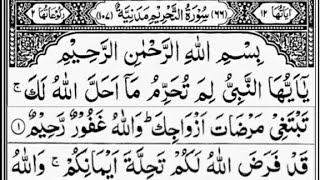 اٰيَاتُهَا ١٢ (٦٦) سُوْرَةُ التَّحْرِيْمِ مَدَنِيَّةٌ (١٠٧) رُكُوْعَاتُهَا ٢
بِسْمِ اللّٰهِ الرَّحْمٰنِ الرَّحِيْمِ
يٰۤاَيُّهَا النَّبِيُّ لِمَ تُحَرِّمُ مَاۤ اَحَلَّ اللّٰهُ لَكَ ۚ
تَبْتَغِيْ مَرْضَاتَ اَزْوَاجِكَ ؕ وَاللّٰهُ غَفُوْرٌ رَّحِيْمٌ ١
قَدْ فَرَضَ اللّٰهُ لَكُمْ تَحِلَّةَ اَيْمَانِكُمْ ۚ وَاللّٰهُ